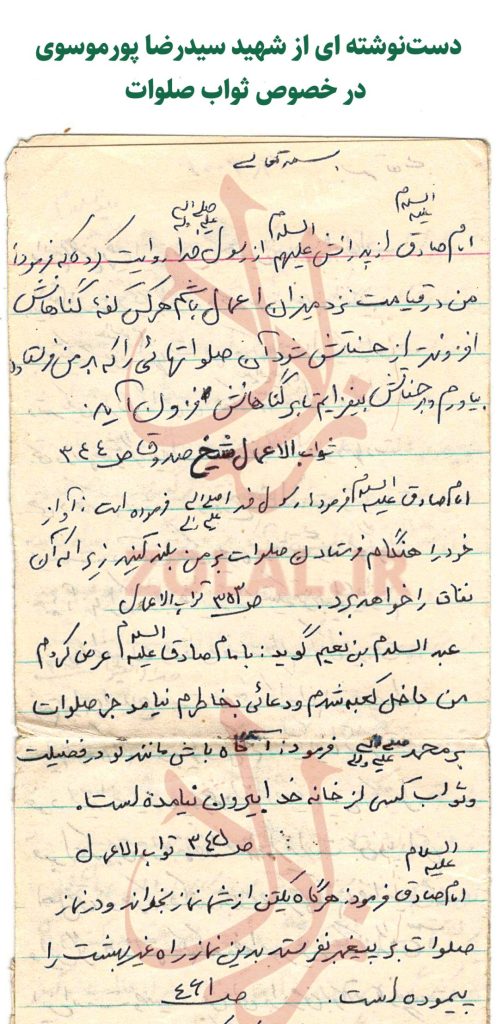 دست‌نوشته ای از شهید سیدرضا پورموسوی
در خصوص ثواب صلوات
بسمه تعالی
امام صادق علیه السلام از پدرانش علیهم السلام از رسول خدا صلی الله علیه و آله روایت کرده که فرمود:
من در قیامت نزد میزان اعمال باشم هرکس کفهٔ گناهانش
افزونتر از حسناتش شود آن صلواتهائی را که بر من فرستاده
بیاورم و بر حسناتش بیفزایم تا بر گناهانش فزون آید.
ثواب الاعمال شیخ صدوق ص ۳۴۴
امام صادق علیه السلام فرمود: رسول خدا صلی الله علیه و آله فرموده است: آواز
خود را هنگام فرستادن صلوات بر من بلند کنید زیرا که آن
نفاق را خواهد برد. ص ۳۵۳ ثواب الاعمال
عبد السلام بن نعیم گوید: با امام صادق علیه السلام عرض کردم
من داخل کعبه شدم و دعائی بخاطرم نیامد جز صلوات
بر محمد صلی الله علیه و آله فرمود: آگاه باش مانند تو در فضیلت
و ثواب کسی از خانه خدا بیرون نیامده است.
ص ۳۴۵ ثواب الاعمال
امام صادق علیه السلام فرمود: هرگاه یکتن از شما نماز بخواند و در نماز
صلوات بر پیغمبر نفرستد بدین نماز راه غیر بهشت را
پیموده است. ص ۴۶۱
ZOLAL.IR